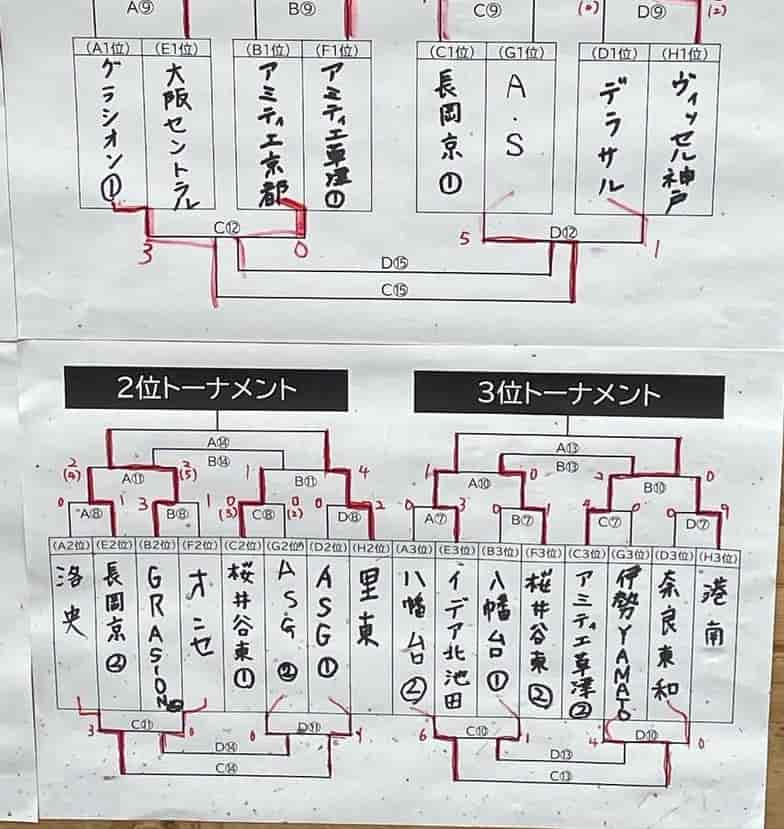 A⑨ B⑨ C⑨ (0) D⑨ (2)
(A1位) (E1位) (B1位) (F1位) (C1位) (G1位) (D1位) (H1位)
グラシオン①
大阪セントラル
アミティエ京都
アミティエ草津①
長岡京①
A.S
デラサル
ヴィッセル神戸
3 C⑫ 0 5 D⑫ 1
D⑮
C⑮
2位トーナメント 3位トーナメント
A⑭ A⑬
B⑭ B⑬
2 (4) A⑪ 2 (5) 1 B⑪ 4 1 A⑩ 0 2 B⑩ 0
0 A⑧ 1 3 B⑧ 1 0 (3) C⑧ 0 (2) 0 D⑧ 2 0 A⑦ 3 0 B⑦ 1 4 C⑦ 0 0 D⑦ 9
(A2位) (E2位) (B2位) (F2位) (C2位) (G2位) (D2位) (H2位) (A3位) (E3位) (B3位) (F3位) (C3位) (G3位) (D3位) (H3位)
洛央
長岡京②
GRASION
オニセ
桜井谷東①
ASG②
ASG①
里東
八幡台②
イデア北池田
八幡台①
桜井谷東②
アミティエ草津②
伊勢YAMATO
奈良東和
港南
3 C⑪ 0 D⑪ 4 6 C⑩ 1 4 D⑩ 0
D⑭ D⑬
C⑭ C⑬